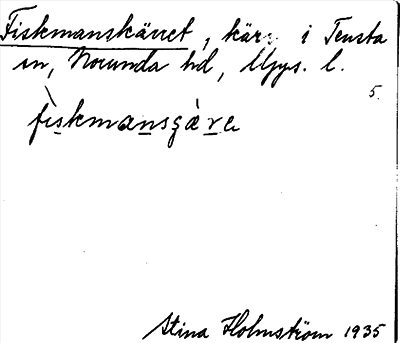 Fiskmanskärret, kärr i Tensta
sn, Norunda hd, Upps. l.
5.
fìskmansgàre
Stina Holmström 1935